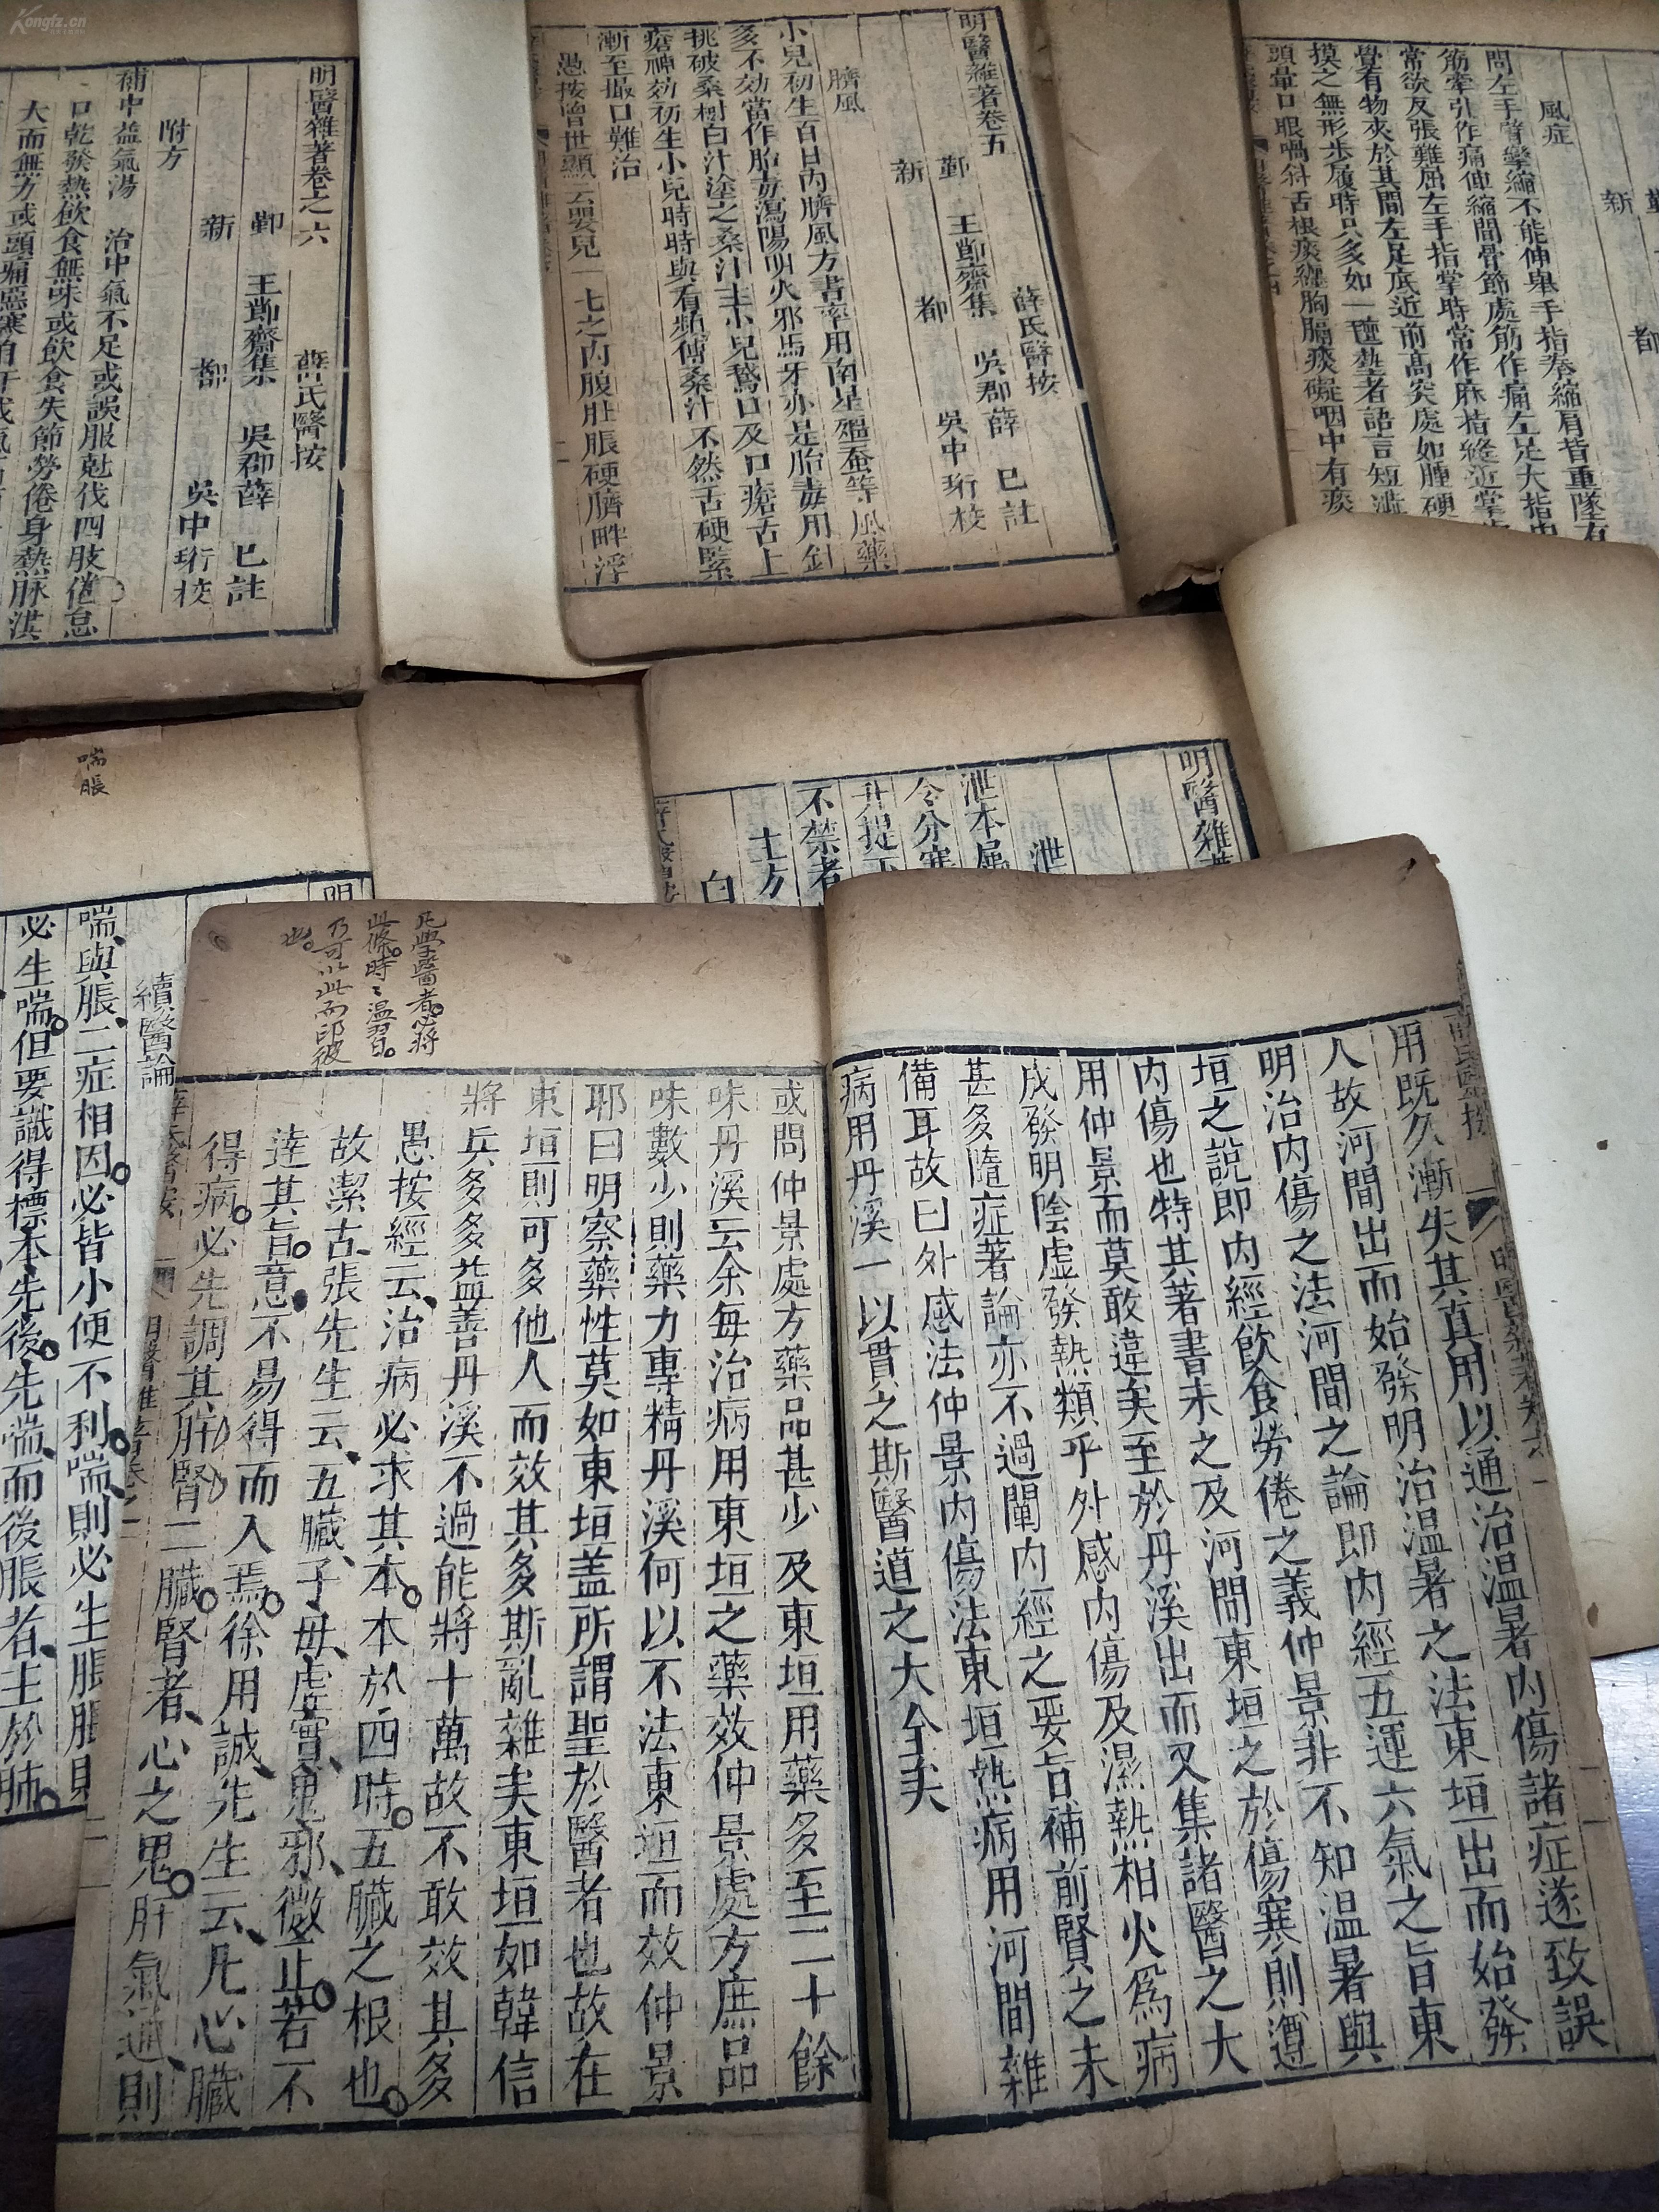 Kongfz.cn
明醫雜著卷之六
薛氏醫按
鄞 王節齋集 吳郡薛 已註
新 都 吳中珩校
附方
補中益氣湯 治中氣不足或誤服尅伐四肢倦怠
口乾發熱飲食無味或飲食失節勞倦身熱脉洪
大而無力或頭痛惡寒自汗
明醫雜著卷五
薛氏醫按
鄞 王節齋集 吳郡薛 已註
新 都 吳中珩校
臍風
小兒初生百日內臍風方書率用南星殭蚕等風藥
多不効當作胎毒瀉陽明火邪馬牙亦是胎毒用針
挑破桑樹白汁塗之桑汁主小兒鵝口及口瘡舌上
瘡神効初生小兒時時與看頻傅桑汁不然舌硬緊
漸至撮口難治
愚按曾世顯云嬰兒一七之內腹肚脹硬臍畔浮
新 都
風症
問左手臂攣縮不能伸舉手指拳縮肩背重墜有
筋牽引作痛伸縮間骨節處筋作痛左足大指
常欲反張難屈左手指掌時常作麻指縫近掌
覺有物夾於其間左足底近前高突處如腫硬
摸之無形步履時只多如一
頭暈口眼喎斜舌根痰纏胸膈痰礙咽中有痰
喘脹
續醫論
喘與脹二症相因必皆小便不利喘則必生脹脹則
必生喘但要識得標本先後先喘而後脹者主於肺
明醫雜
泄
泄本屬
令分寒
升提下
不禁者
土方
白
凡學醫者必將
此條時時溫習
乃可以此而印彼
也
用既久漸失其真用以通治温暑內傷諸症遂致誤
人故河間出而始發明治温暑之法東垣出而始發
明治內傷之法河間之論即內經五運六氣之旨東
垣之說即內經飲食勞倦之義仲景非不知温暑與
內傷也特其著書未之及河間東垣之於傷寒則遵
用仲景而莫敢違矣至於丹溪出而又集諸醫之大
成發明陰虛發熱類乎外感內傷及濕熱相火為病
甚多隨症著論亦不過闡內經之要旨補前賢之未
備耳故曰外感法仲景內傷法東垣熱病用河間雜
病用丹溪一以貫之斯醫道之大全矣
或問仲景處方藥品甚少及東垣用藥多至二十餘
味丹溪云余每治病用東垣之藥效仲景處方庶品
味數少則藥力專精丹溪何以不法東垣而效仲景
耶曰明察藥性莫如東垣盖所謂聖於醫者也故在
東垣則可多他人而效其多斯亂雜矣東垣如韓信
將兵多多益善丹溪不過能將十萬故不敢效其多
愚按經云治病必求其本本於四時五臟之根也
故潔古張先生云五臟子母虛實鬼邪微正若不
達其旨意不易得而入焉徐用誠先生云凡心臟
得病必先調其肝腎二臟腎者心之鬼肝氣通則